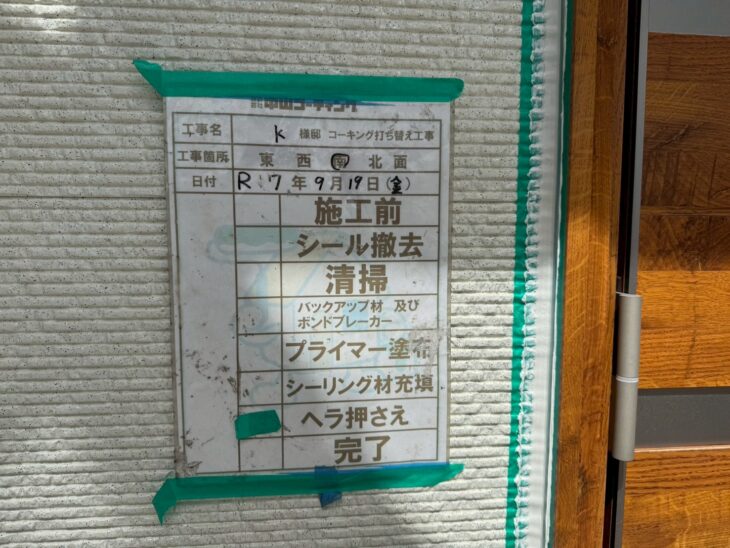 中山コーティング
工事名 K 様邸 コーキング打ち替え工事
工事箇所 東 西 南 北 面
日付 R 7 年 9 月 19 日 (金)
施工前
シール撤去
清掃
バックアップ材 及び
ボンドブレーカー
プライマー塗布
シーリング材充填
ヘラ押さえ
完了